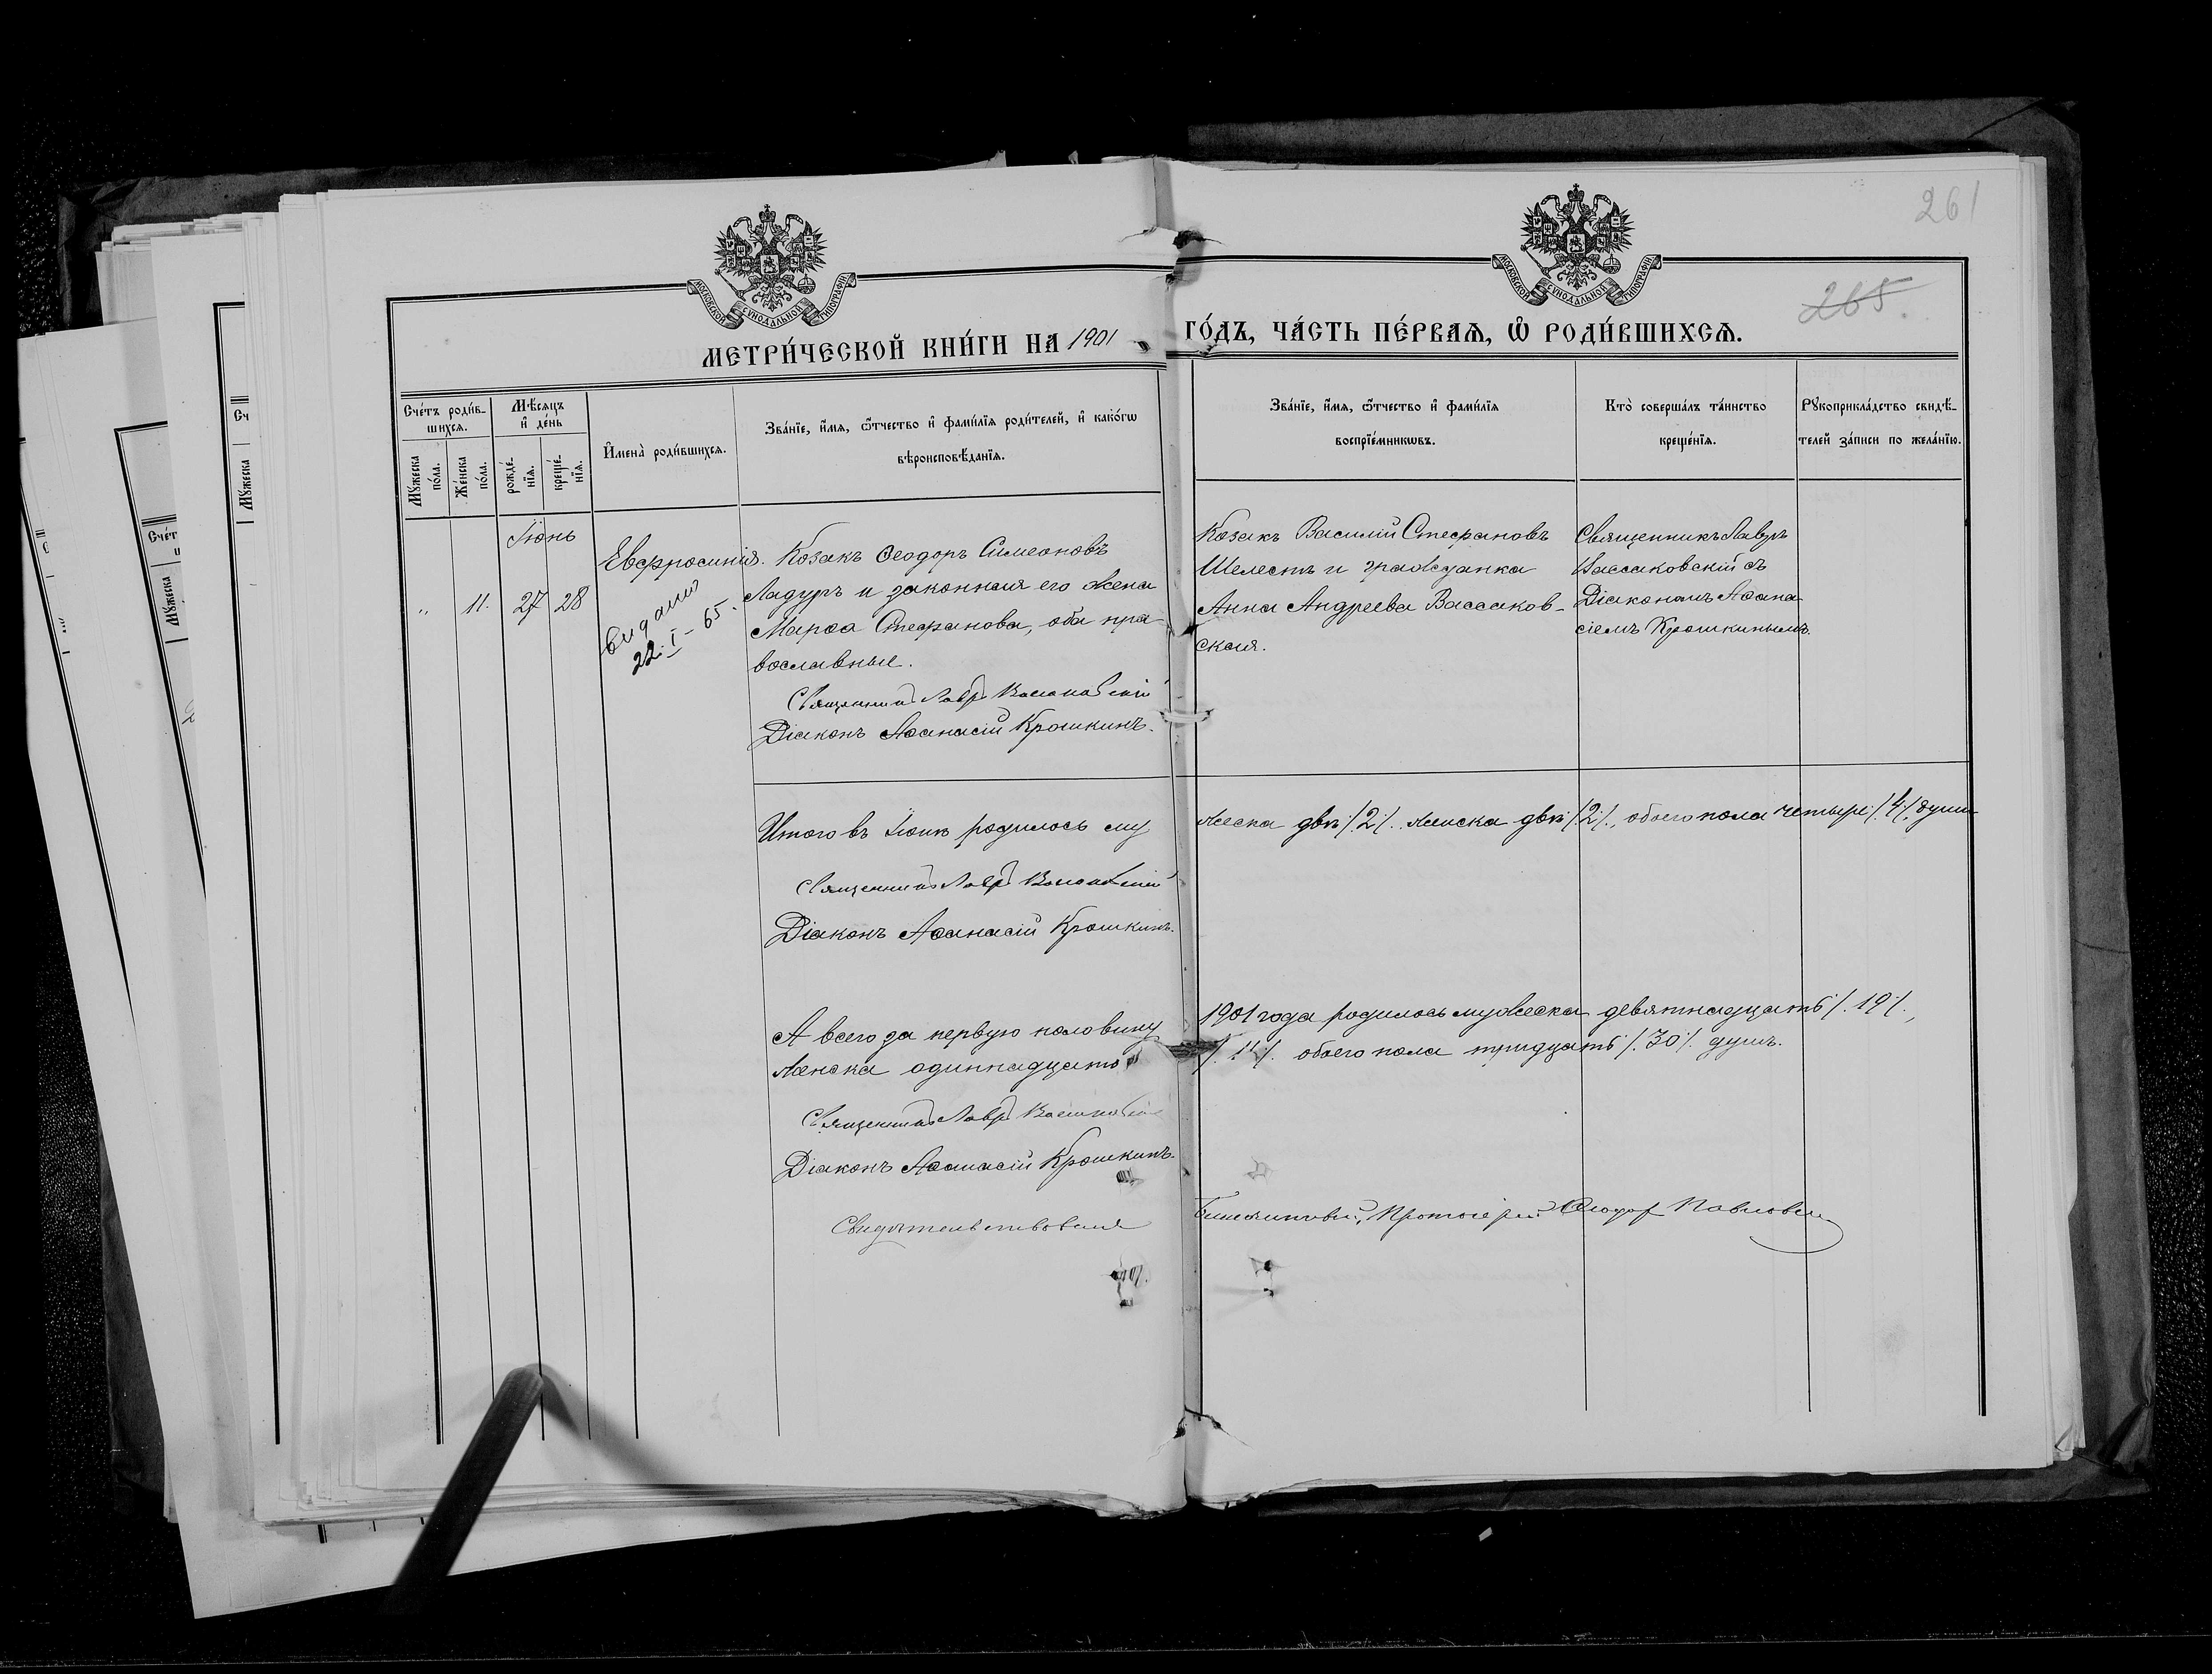 261
265.
МОСКОВСКОЙ СѴНОДАЛЬНОЙ ТИПОГРАФІИ
МОСКОВСКОЙ СѴНОДАЛЬНОЙ ТИПОГРАФІИ
МЕТРИ́ЧЕСКОЙ КНИ́ГИ НА 1901 ГО́ДЪ, ЧА́СТЬ ПЕ́РВАѦ, Ѡ҆ РОДИ́ВШИХСѦ.
Сче́тъ роди́в-
шихсѧ.
Мѣ́сѧцъ
и҆ де́нь
Мꙋ́жеска по́ла.
Же́нска по́ла.
рожде́-нїѧ.
креще́-нїѧ.
И҆мена̀ роди́вшихсѧ.
Зва́нїе, и҆́мѧ, ѻ҆́тчество и҆ фамѝлїѧ роди́телей, и҆ како́гѡ
вѣроисповѣ́данїѧ.
Зва́нїе, и҆́мѧ, ѻ҆́тчество и҆ фамѝлїѧ
воспрїе́мникѡвъ.
Кто̀ соверша́лъ та́инство
креще́нїѧ.
Рꙋкоприкла́дство свидѣ́-
телей за́писи по жела́нїю.
Іюнь
„ 11. 27 28
Евфросинія.
видано
22.I-65.
Козакъ Ѳеодоръ Симеоновъ
Ладуръ и законная его жена
Марѳа Стефанова, оба пра-
вославные.
Священникъ Лавръ Вассаковскій
Діаконъ Аѳанасій Крошкинъ.
Козакъ Василій Стефановъ
Шелестъ и гражданка
Анна Андреева Вассаков-
ская.
Священникъ Лавръ
Вассаковскій съ
Діакономъ Аѳана-
сіемъ Крошкинымъ.
Итого въ Іюнѣ родилось му
жеска двѣ /.2./. женска двѣ /.2./., обоего пола четыре /.4./. души
Священникъ Лавръ Вассаковскій
Діаконъ Аѳанасій Крошкинъ.
А всего за первую половину 1901 года родилось мужеска девятнадцать /.19./.,
женска одиннадцать /.11./. обоего пола тридцать /.30./. душъ.
Священникъ Лавръ Вассаковскій
Діаконъ Аѳанасій Крошкинъ.
Протоіерей Ѳеодор
Сч
Мꙋ́жеска
Сче́т
Мꙋ́жеска